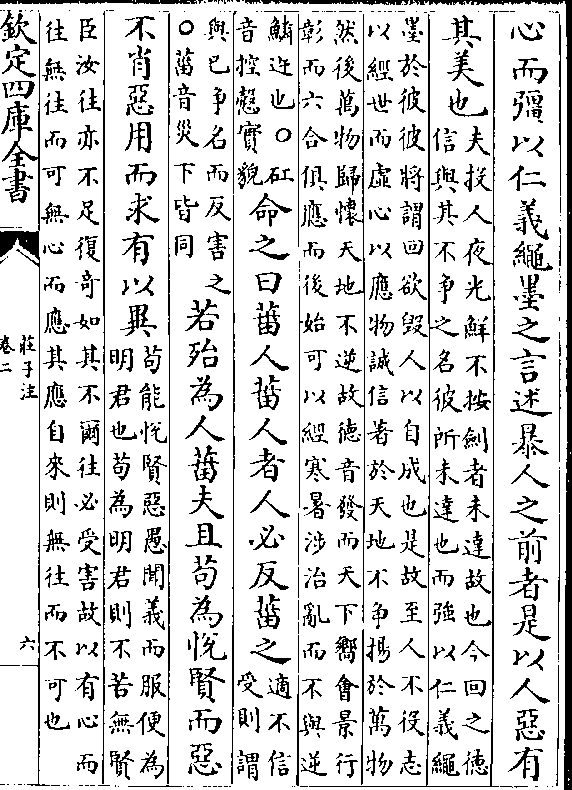 心而彊以仁義繩墨之言述暴人之前者是以人惡有
其美也
夫投人夜光鮮不按劍者未達故也今回之德
信與其不争之名彼所未達也而強以仁義繩
墨於彼彼將謂回欲毁人以自成也是故至人不役志
以經世而虛心以應物誠信著於天地不争揚於萬物
然後萬物歸懷天地不逆故德音發而天下嚮會景行
彰而六合俱應而後始可以經寒暑涉治亂而不與逆
鱗迕也○矼
音控慤實貌
命之曰菑人菑人者人必反菑之
適不信
受則謂
與已争名而反害之
○菑音災下皆同
若殆為人菑夫且苟為悅賢而惡
不肖惡用而求有以異
苟能悅賢惡愚聞義而服便為
明君也苟為明君則不苦無賢
臣汝往亦不足復奇如其不爾往必受害故以有心而
往無往而可無心而應其應自來則無往而不可也
欽定四庫全書
莊子注
卷二
六